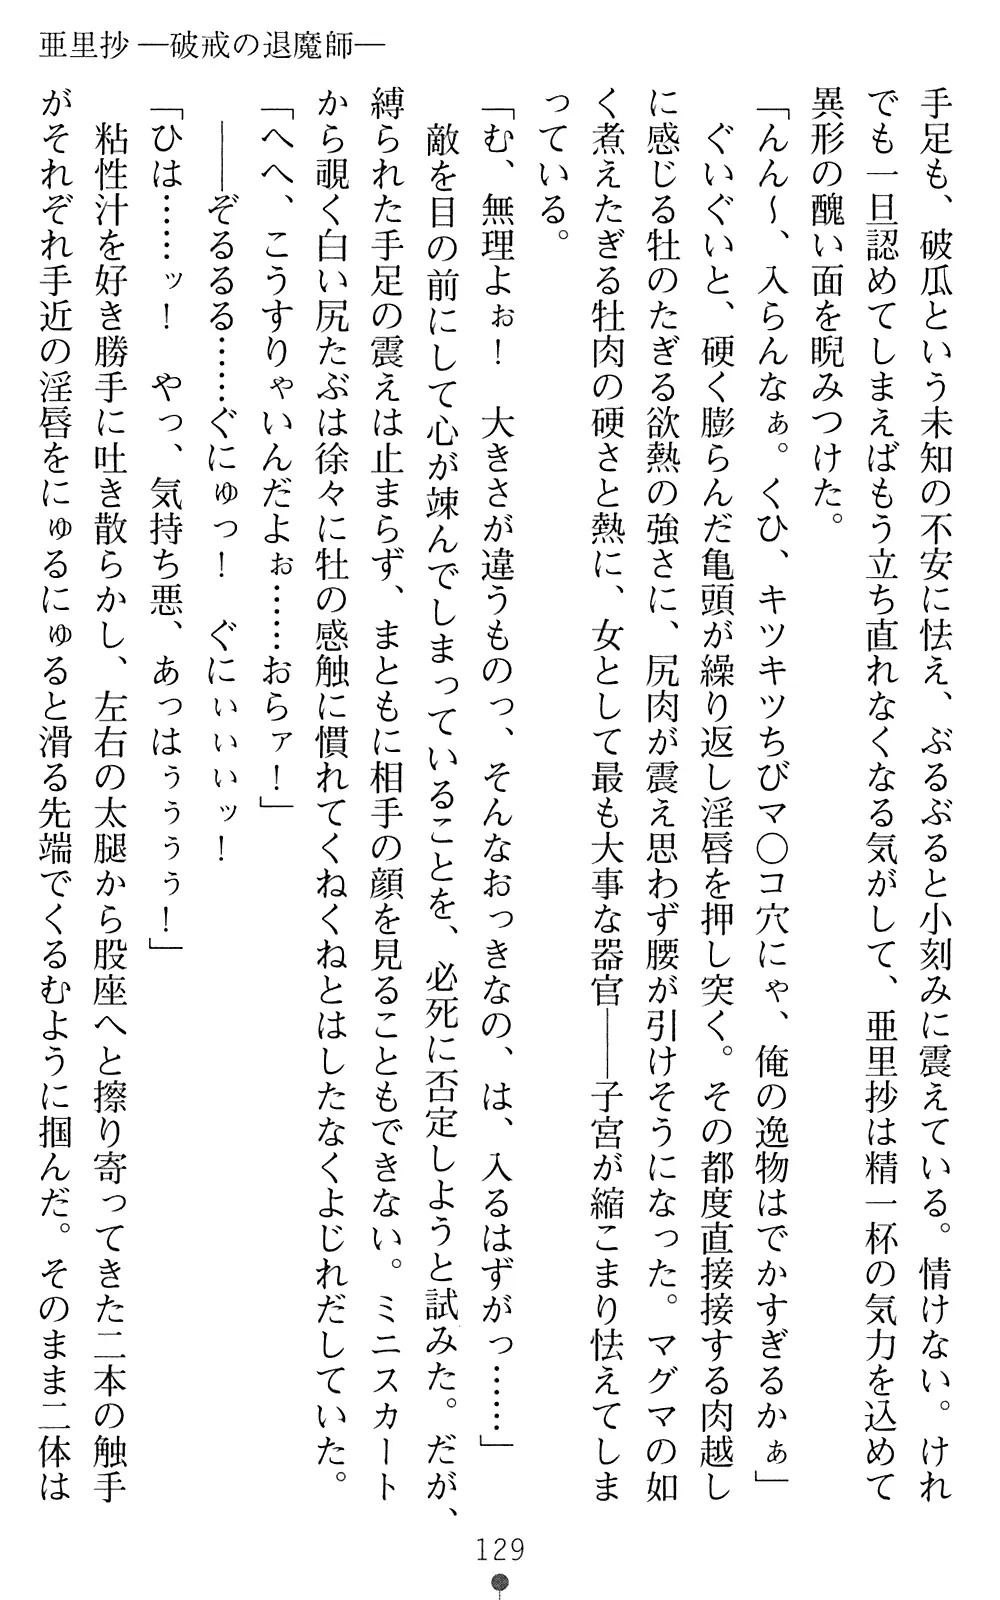 亜里抄 ―破戒の退魔師―
手足も、破瓜という未知の不安に怯え、ぶるぶると小刻みに震えている。情けない。けれ
でも一旦認めてしまえばもう立ち直れなくなる気がして、亜里抄は精一杯の気力を込めて
異形の醜い面を睨みつけた。
「んん～、入らんなぁ。くひ、キツキツちびマ○コ穴にゃ、俺の逸物はでかすぎるかぁ」
ぐいぐいと、硬く膨らんだ亀頭が繰り返し淫唇を押し突く。その都度直接接する肉越し
に感じる牡のたぎる欲熱の強さに、尻肉が震え思わず腰が引けそうになった。マグマの如
く煮えたぎる牡肉の硬さと熱に、女として最も大事な器官――子宮が縮こまり怯えてしま
っている。
「む、無理よぉ！　大きさが違うものっ、そんなおっきなの、は、入るはずがっ……」
敵を目の前にして心が竦んでしまっていることを、必死に否定しようと試みた。だが、
縛られた手足の震えは止まらず、まともに相手の顔を見ることもできない。ミニスカート
から覗く白い尻たぶは徐々に牡の感触に慣れてくねくねとはしたなくよじれだしていた。
「へへ、こうすりゃいんだよぉ……おらァ！」
――ぞるるる……ぐにゅっ！　ぐにぃぃぃッ！
「ひは……ッ！　やっ、気持ち悪、あっはぅぅぅ！」
粘性汁を好き勝手に吐き散らかし、左右の太腿から股座へと擦り寄ってきた二本の触手
がそれぞれ手近の淫唇をにゅるにゅると滑る先端でくるむように掴んだ。そのまま二体は
129